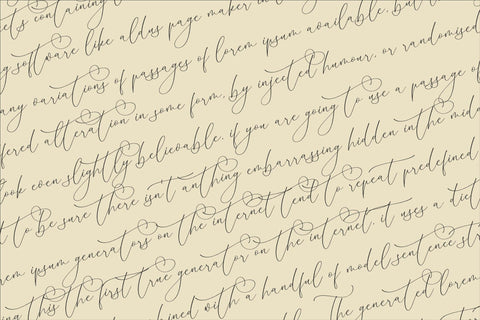 ets containing
g software like aldus page maker in
any variations of passages of lorem ipsum available, but
fered alteration in some form, by injected humour, or randomised
ook even slightly believable. if you are going to use a passage of
t to be sure there isn't anthing embarrassing hidden in the mid
rem ipsum generators on the internet tend to repeat predefined
ing this the first true generator on the internet. it uses a dict
bined with a handful of model sentence str
The generated lorem